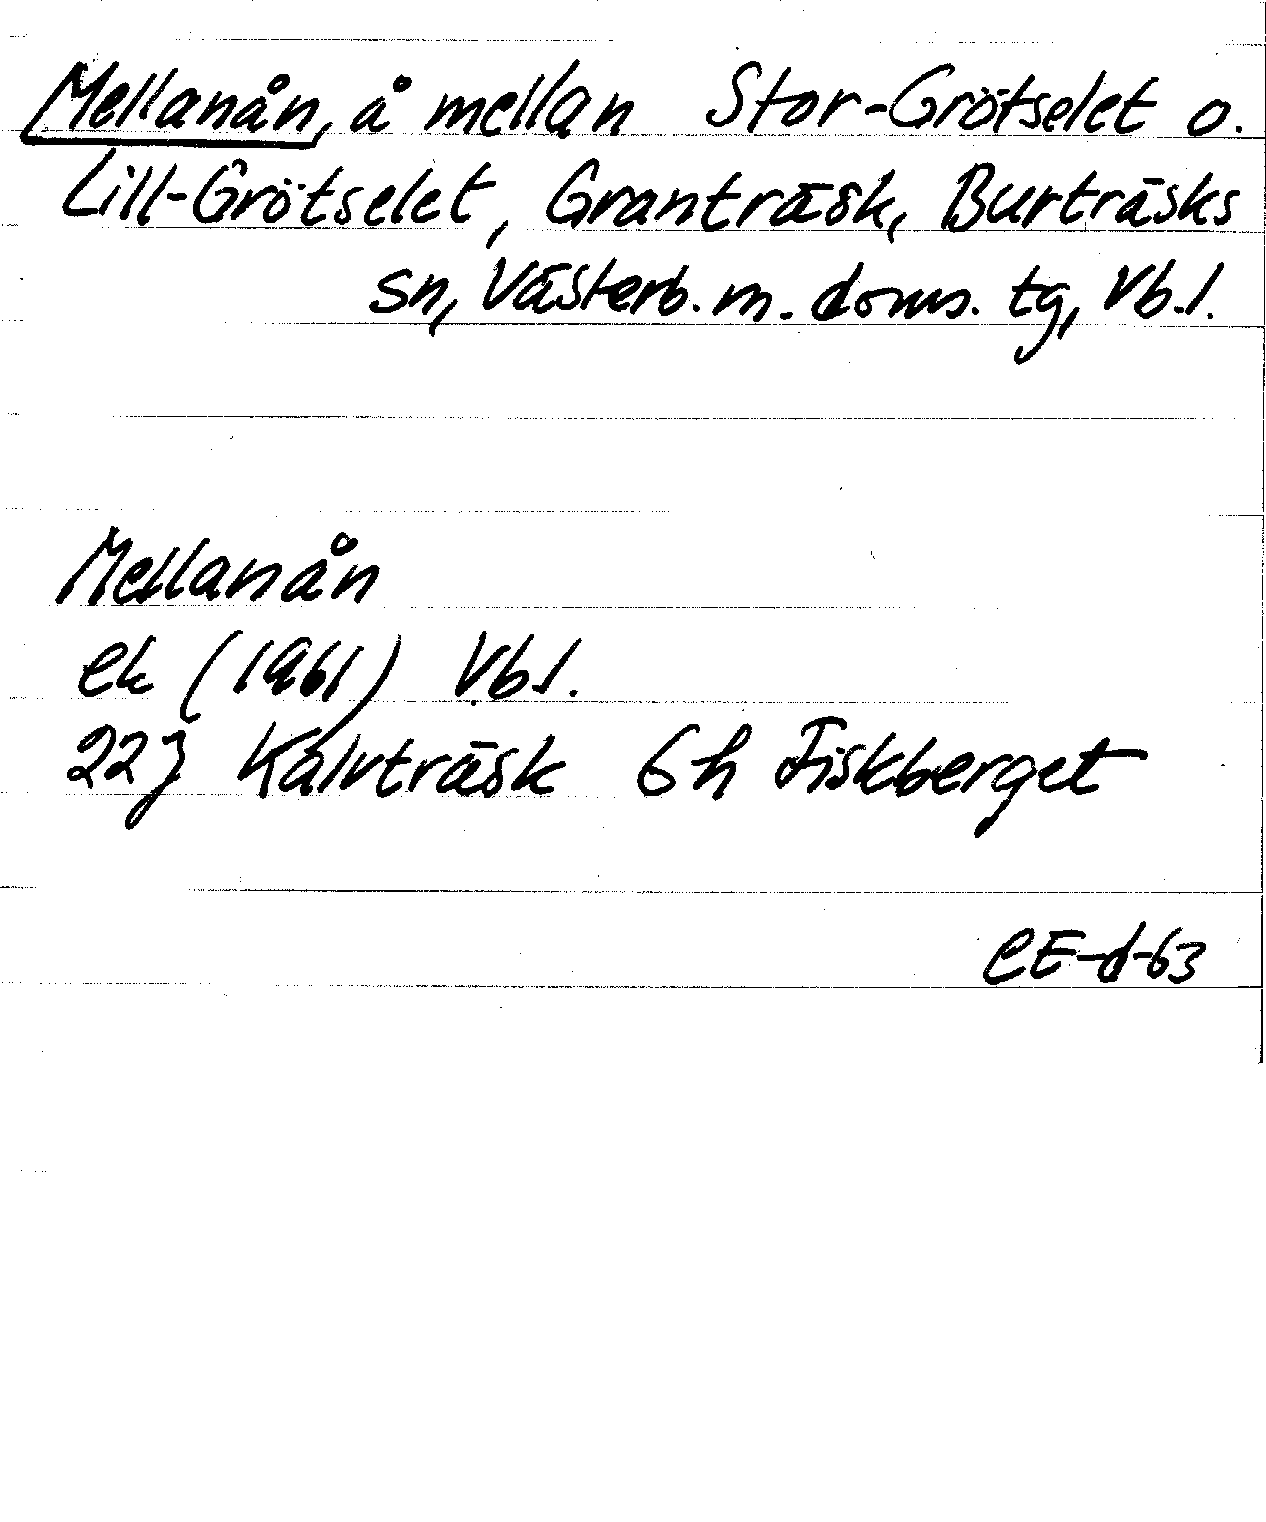 Mellanån, å mellan Stor-Grötselet o.
Lill-Grötselet, Granträsk, Burträsks
sn, Västerb. m. doms. tg, Vb.l.
Mellanån
ek (1961) Vbl.
22J Kalvträsk 6h Fiskberget
CE-d-63